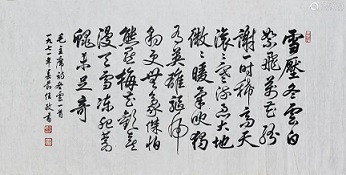 雪壓冬雲白
絮飛萬花紛
謝一時稀高天
滾〻寒流急大地
微〻暖氣吹獨
有英雄驅虎
豹更無豪傑怕
熊羆梅花歡喜
漫天雪凍死蒼
蠅未足奇
毛主席詩冬雲一首
一九七一年任政書